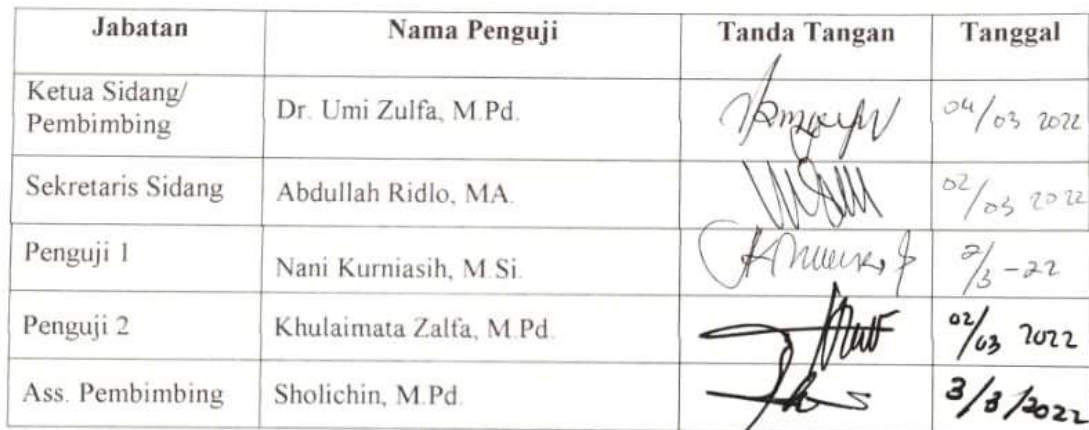 Jabatan Nama Penguji Tanda Tangan Tanggal
Ketua Sidang/
Pembimbing Dr. Umi Zulfa, M.Pd. 04/03 2022
Sekretaris Sidang Abdullah Ridlo, MA. 02/03 2022
Penguji 1 Nani Kurniasih, M.Si. 2/3 - 22
Penguji 2 Khulaimata Zalfa, M.Pd. 02/03 2022
Ass. Pembimbing Sholichin, M.Pd. 3/3/2022